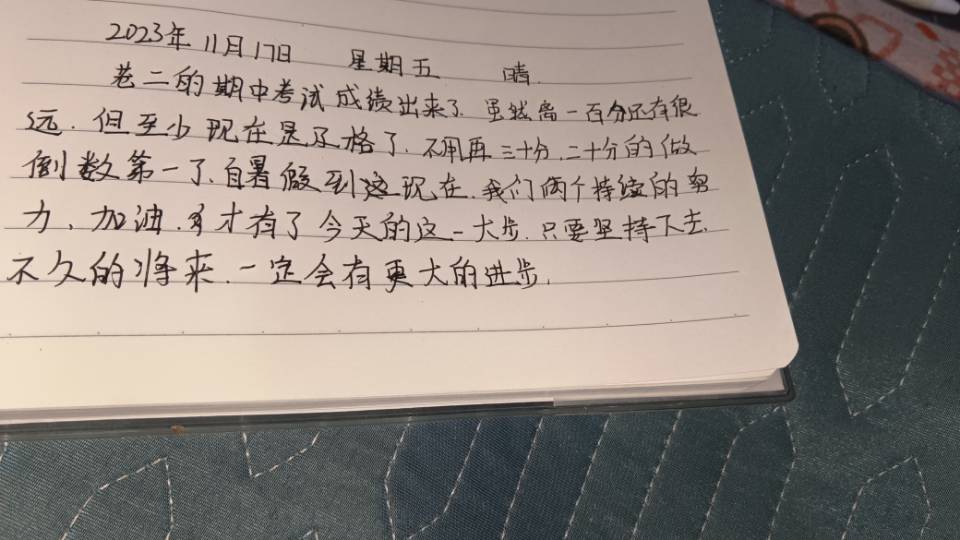 2023年11月17日 星期五 晴.
卷二的期中考试成绩出来了.虽然离一百分还有很
远.但至少现在是及格了.不用再三十分.二十分的做
倒数第一了.自暑假到这现在.我们两个持续的努
力、加油.才有了今天的这一大步.只要坚持下去.
不久的将来.一定会有更大的进步.